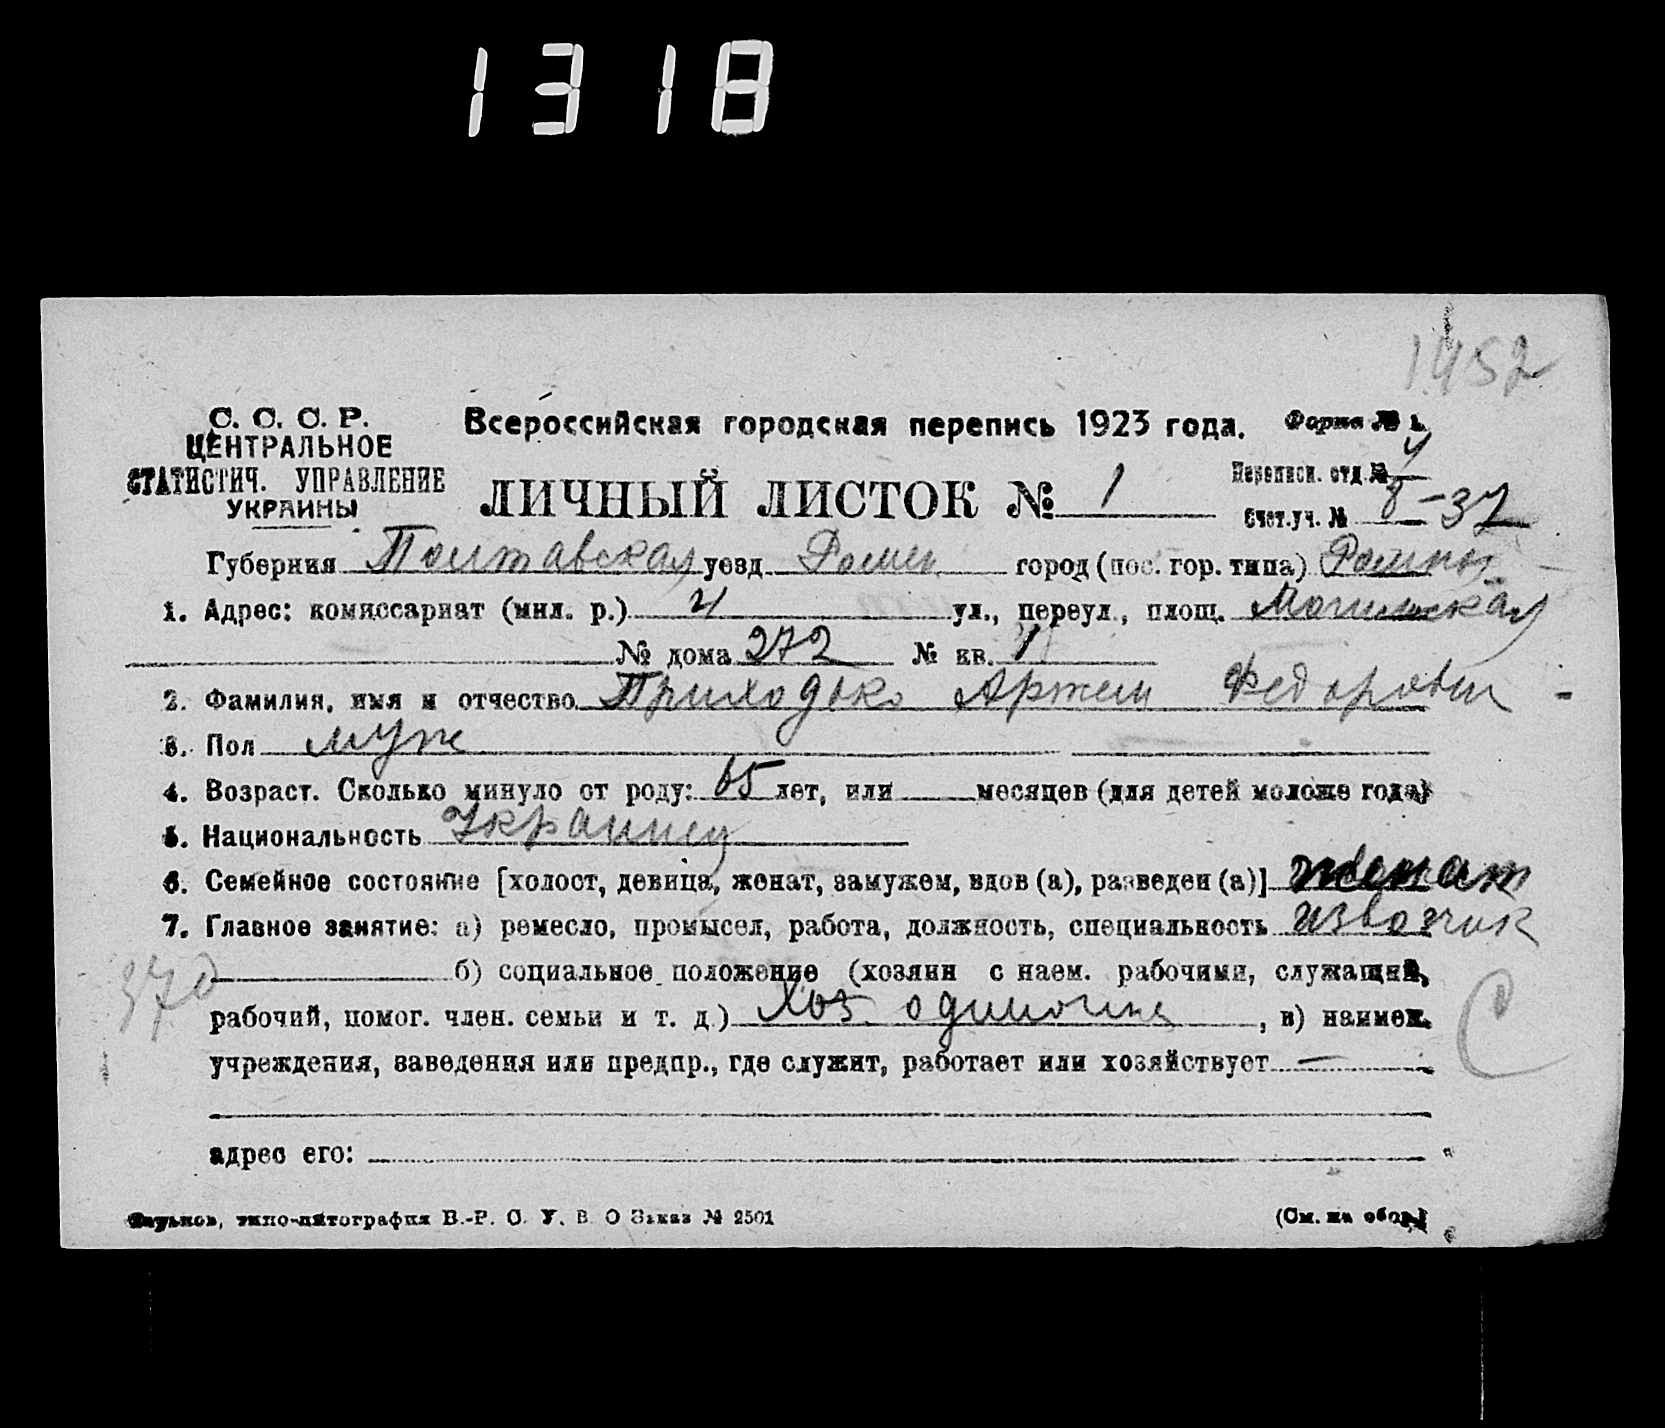 1318
1952
С. С. С. Р.
ЦЕНТРАЛЬНОЕ
СТАТИСТИЧ. УПРАВЛЕНИЕ
УКРАИНЫ
Всероссийская городская перепись 1923 года. Форма № 1.
ЛИЧНЫЙ ЛИСТОК № 1
Переписн. отд. № 4
Счет. уч. № 8-37
Губерния Полтавская уезд Ромен город (пос. гор. типа) Ромны
1. Адрес: комиссариат (мил. р.) 4 ул., переул., площ.
№ дома 272 № кв. 1
2. Фамилия, имя и отчество Приходько Артем Федорович
3. Пол муж
4. Возраст. Сколько минуло от роду: 65 лет, или месяцев (для детей моложе года)
5. Национальность Украинец
6. Семейное состояние [холост, девица, женат, замужем, вдов (а), разведен (а)] женат
7. Главное занятие: а) ремесло, промысел, работа, должность, специальность извозчик
б) социальное положение (хозяин с наем. рабочими, служащий,
рабочий, помог. член. семьи и т. д.) Хоз. одиночка, в) наимен.
учреждения, заведения или предпр., где служит, работает или хозяйствует —
адрес его:
370
С
Харьков, типо-литография В.-Р. С. У. В. О Заказ № 2501 (См. на обор.)